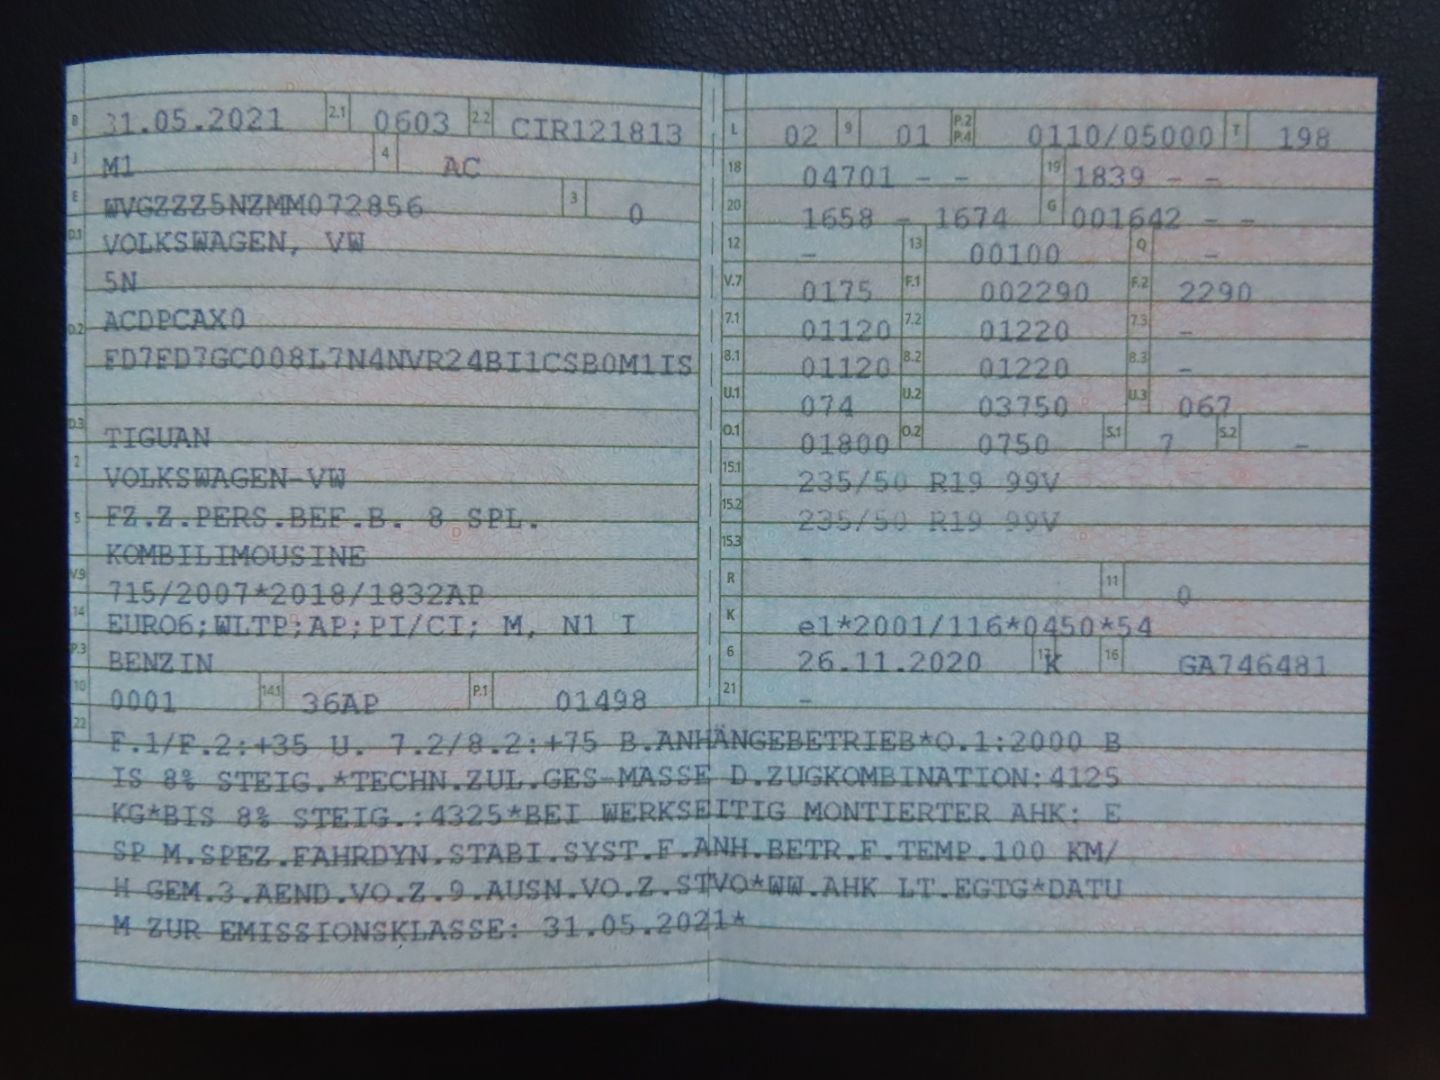 B 31.05.2021 2.1 0603 2.2 CIR121813
J M1 4 AC
E WVGZZZ5NZMM072856 3 0
D.1 VOLKSWAGEN, VW
5N
D.2 ACDPCAX0
FD7FD7GC008L7N4NVR24BI1CSB0M1IS
D.3 TIGUAN
2 VOLKSWAGEN-VW
5 FZ.Z.PERS.BEF.B. 8 SPL.
KOMBILIMOUSINE
V.9 715/2007*2018/1832AP
14 EURO6;WLTP;AP;PI/CI; M, N1 I
P.3 BENZIN
10 0001 14.1 36AP P.1 01498
L 02 9 01 P.2 P.4 0110/05000 T 198
18 04701 - - 19 1839 - -
20 1658 - 1674 G 001642 - -
12 - 13 00100 Q -
V.7 0175 F.1 002290 F.2 2290
7.1 01120 7.2 01220 7.3 -
8.1 01120 8.2 01220 8.3 -
U.1 074 U.2 03750 U.3 067
O.1 01800 O.2 0750 S.1 7 S.2 -
15.1 235/50 R19 99V
15.2 235/50 R19 99V
15.3 -
R 11 0
K e1*2001/116*0450*54
6 26.11.2020 17 K 16 GA746481
21 -
22 F.1/F.2:+35 U. 7.2/8.2:+75 B.ANHÄNGEBETRIEB*O.1:2000 B
IS 8% STEIG.*TECHN.ZUL.GES-MASSE D.ZUGKOMBINATION:4125
KG*BIS 8% STEIG.:4325*BEI WERKSEITIG MONTIERTER AHK: E
SP M.SPEZ.FAHRDYN.STABI.SYST.F.ANH.BETR.F.TEMP.100 KM/
H GEM.3.AEND.VO.Z.9.AUSN.VO.Z.STVO*WW.AHK LT.EGTG*DATU
M ZUR EMISSIONSKLASSE: 31.05.2021*